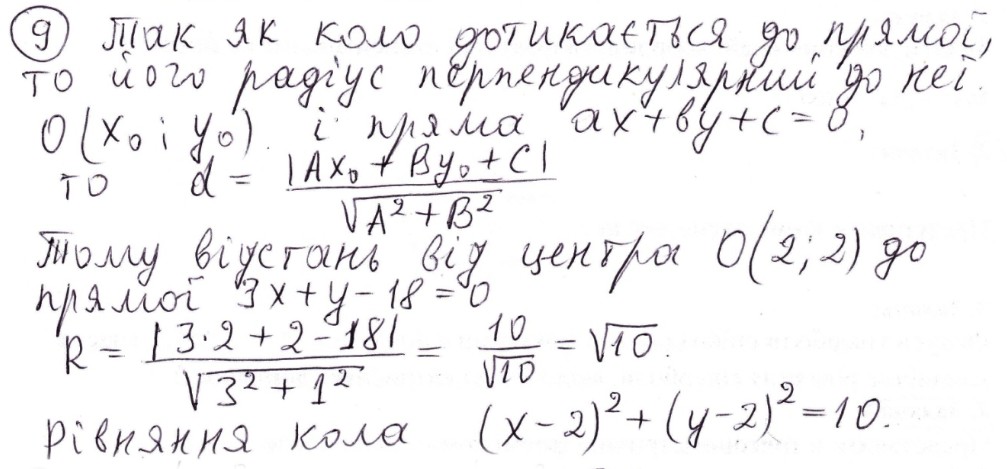 9 Так як коло дотикається до прямої,
то його радіус перпендикулярний до неї.
O(x₀; y₀) і пряма ax+by+c=0,
то d = |Ax₀ + By₀ + C| / √(A² + B²)
Тому відстань від центра O(2; 2) до
прямої 3x+y-18=0
R = |3·2 + 2 - 18| / √(3² + 1²) = 10/√10 = √10.
Рівняння кола (x-2)² + (y-2)² = 10.